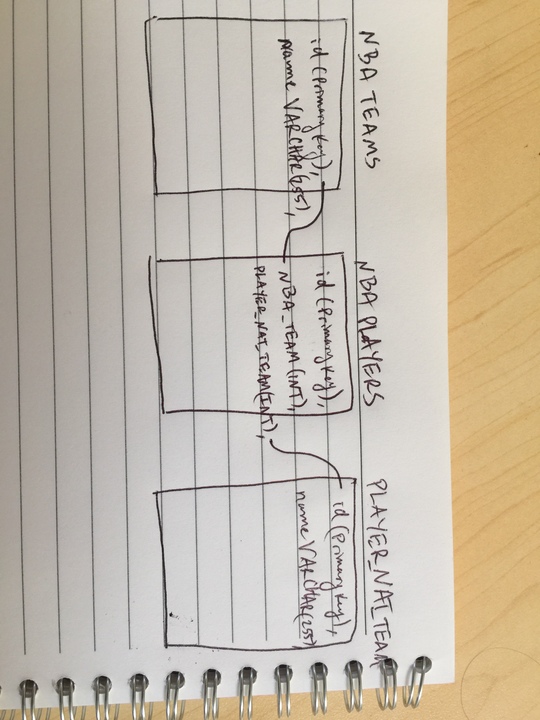 NBA TEAMS
id (Primary Key),
Name VARCHAR(255),
NBA PLAYERS
id (Primary Key),
NBA_TEAM (INT),
PLAYER_NAT_TEAM(INT),
PLAYER_NAT_TEAM
id (Primary Key),
name VARCHAR(255)